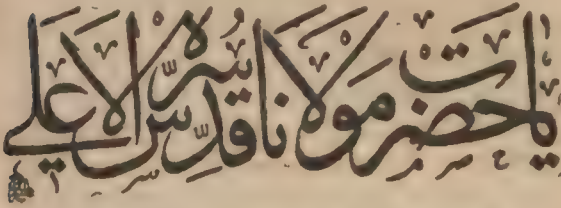 يا حضرت مولانا قدس سره الاعلى